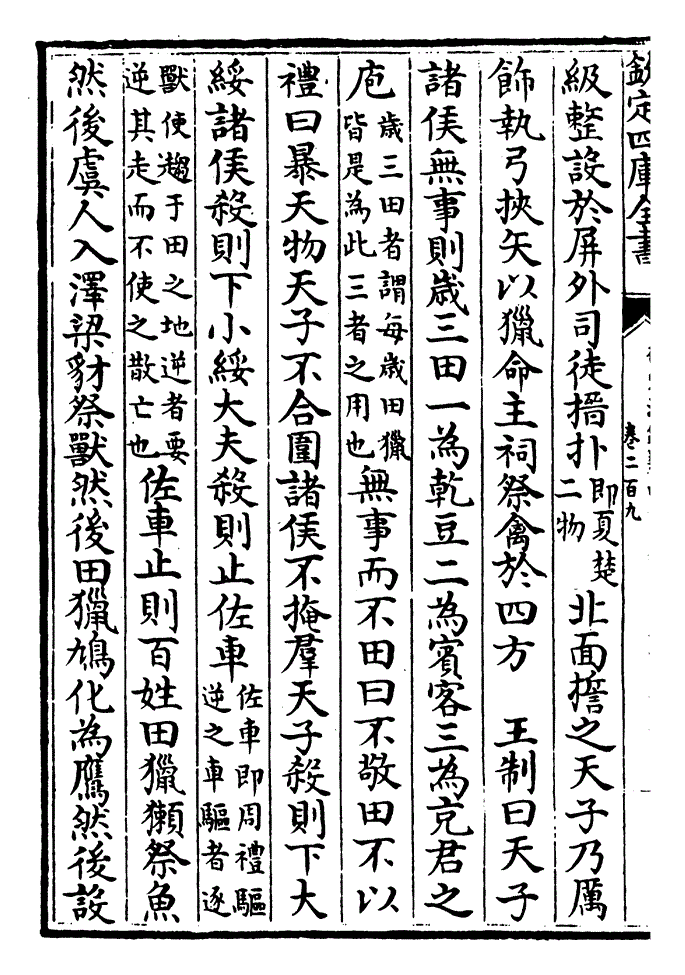 欽定四庫全書
卷二百九
級整設於屏外司徒搢扑即夏楚二物北面誓之天子乃厲
飾執弓挾矢以獵命主祠祭禽於四方　王制曰天子
諸侯無事則歲三田一為乾豆二為賓客三為充君之
庖歲三田者謂每歲田獵皆是為此三者之用也無事而不田曰不敬田不以
禮曰暴天物天子不合圍諸侯不掩羣天子殺則下大
綏諸侯殺則下小綏大夫殺則止佐車佐車即周禮驅逆之車驅者逐
獸使趨于田之地逆者要逆其走而不使之散亡也佐車止則百姓田獵獺祭魚
然後虞人入澤梁豺祭獸然後田獵鳩化為鷹然後設